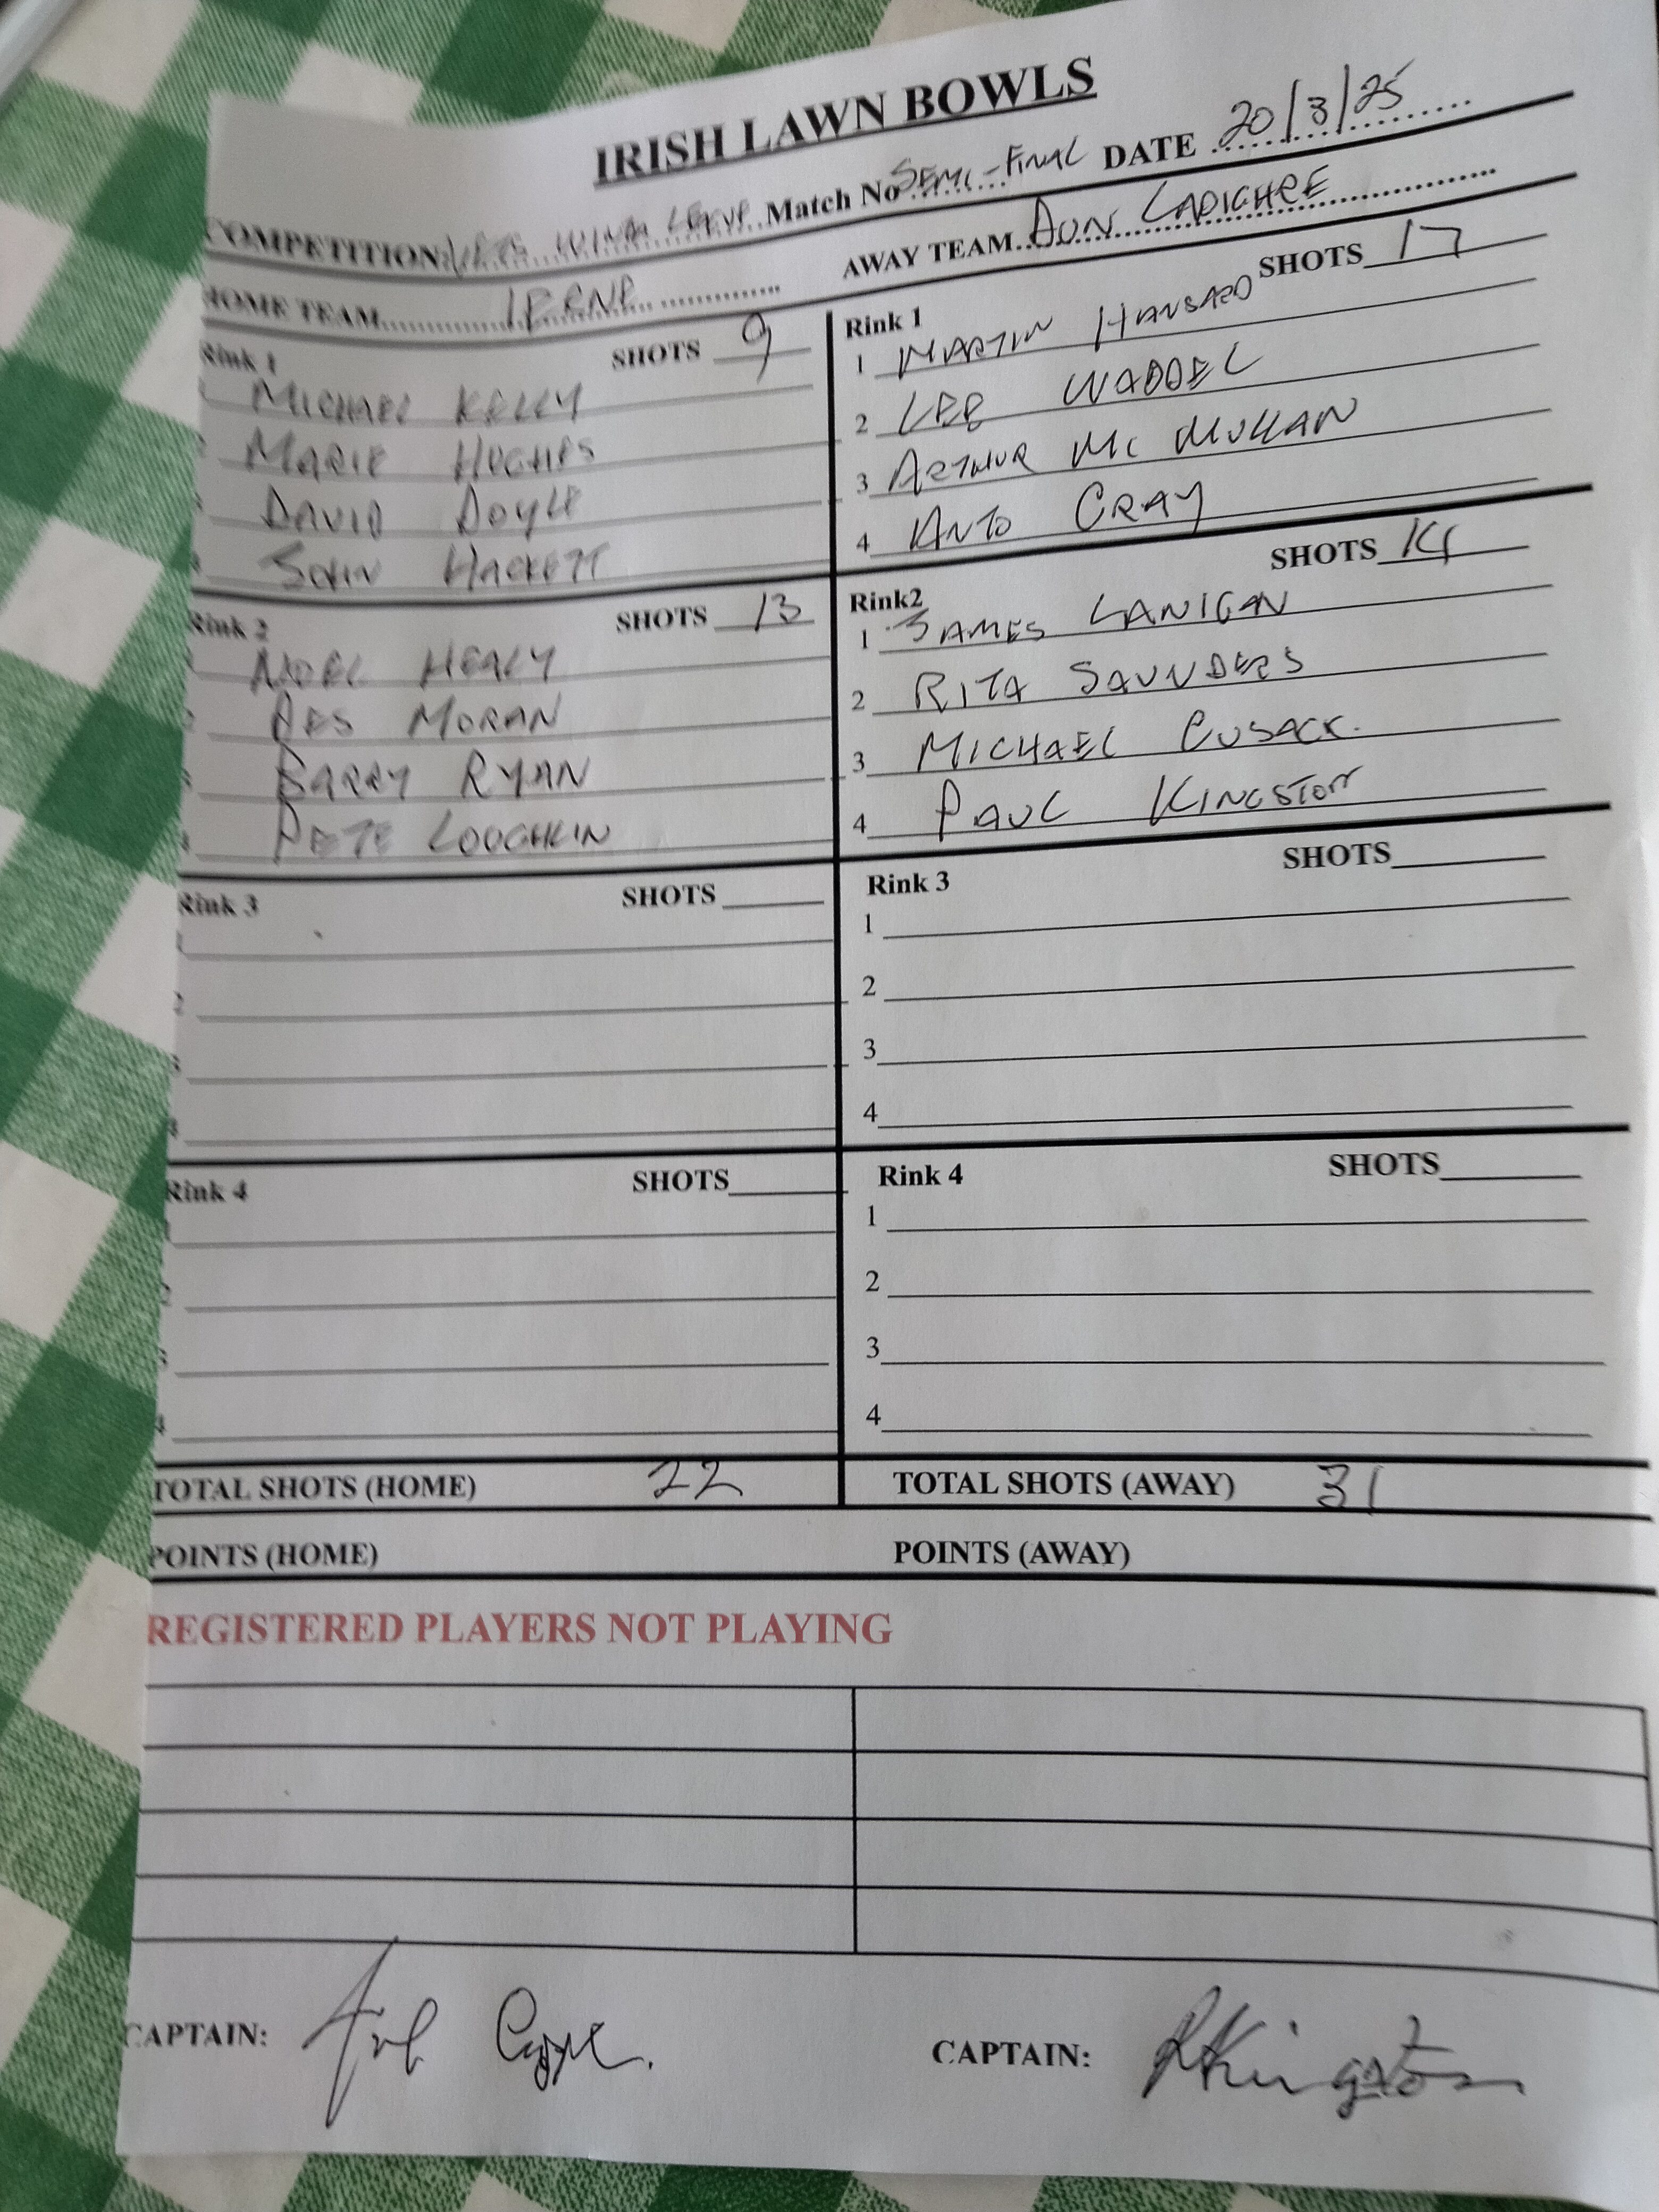 IRISH LAWN BOWLS
COMPETITION: VETS Match No SEMI-FINAL DATE 20/3/25
HOME TEAM IERNE AWAY TEAM DUN LAOIGHRE
Rink 1 SHOTS 9
MICHAEL KELLY
MARIE HUGHES
DAVID DOYLE
JOHN HACKETT
Rink 1 SHOTS 17
1 MARTIN HANSARD
2 LEE WADDEL
3 ARTHUR Mc MULLAN
4 ANTO CRAY
Rink 2 SHOTS 13
NOEL HEALY
DES MORAN
BARRY RYAN
PETE LOUGHLIN
Rink2 SHOTS 14
1 JAMES LANIGAN
2 RITA SAUNDERS
3 MICHAEL CUSACK.
4 PAUL KINGSTON
Rink 3 SHOTS
1
2
3
4
Rink 3 SHOTS
1
2
3
4
Rink 4 SHOTS
1
2
3
4
Rink 4 SHOTS
1
2
3
4
TOTAL SHOTS (HOME) 22 TOTAL SHOTS (AWAY) 31
POINTS (HOME) POINTS (AWAY)
REGISTERED PLAYERS NOT PLAYING
CAPTAIN: CAPTAIN: PKingston